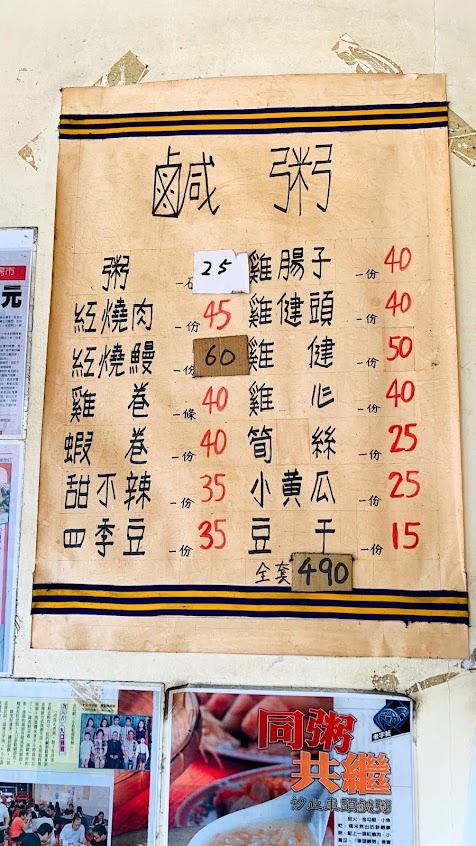 鹹粥
粥 25
紅燒肉 一份 45
紅燒鰻 一份 60
雞卷 一條 40
蝦卷 一份 40
甜不辣 一份 35
四季豆 一份 35
雞腸子 一份 40
雞健頭 一份 40
雞健 一份 50
雞心 一份 40
筍絲 一份 25
小黃瓜 一份 25
豆干 一份 15
全套 490
元
同粥
共繼
老字號